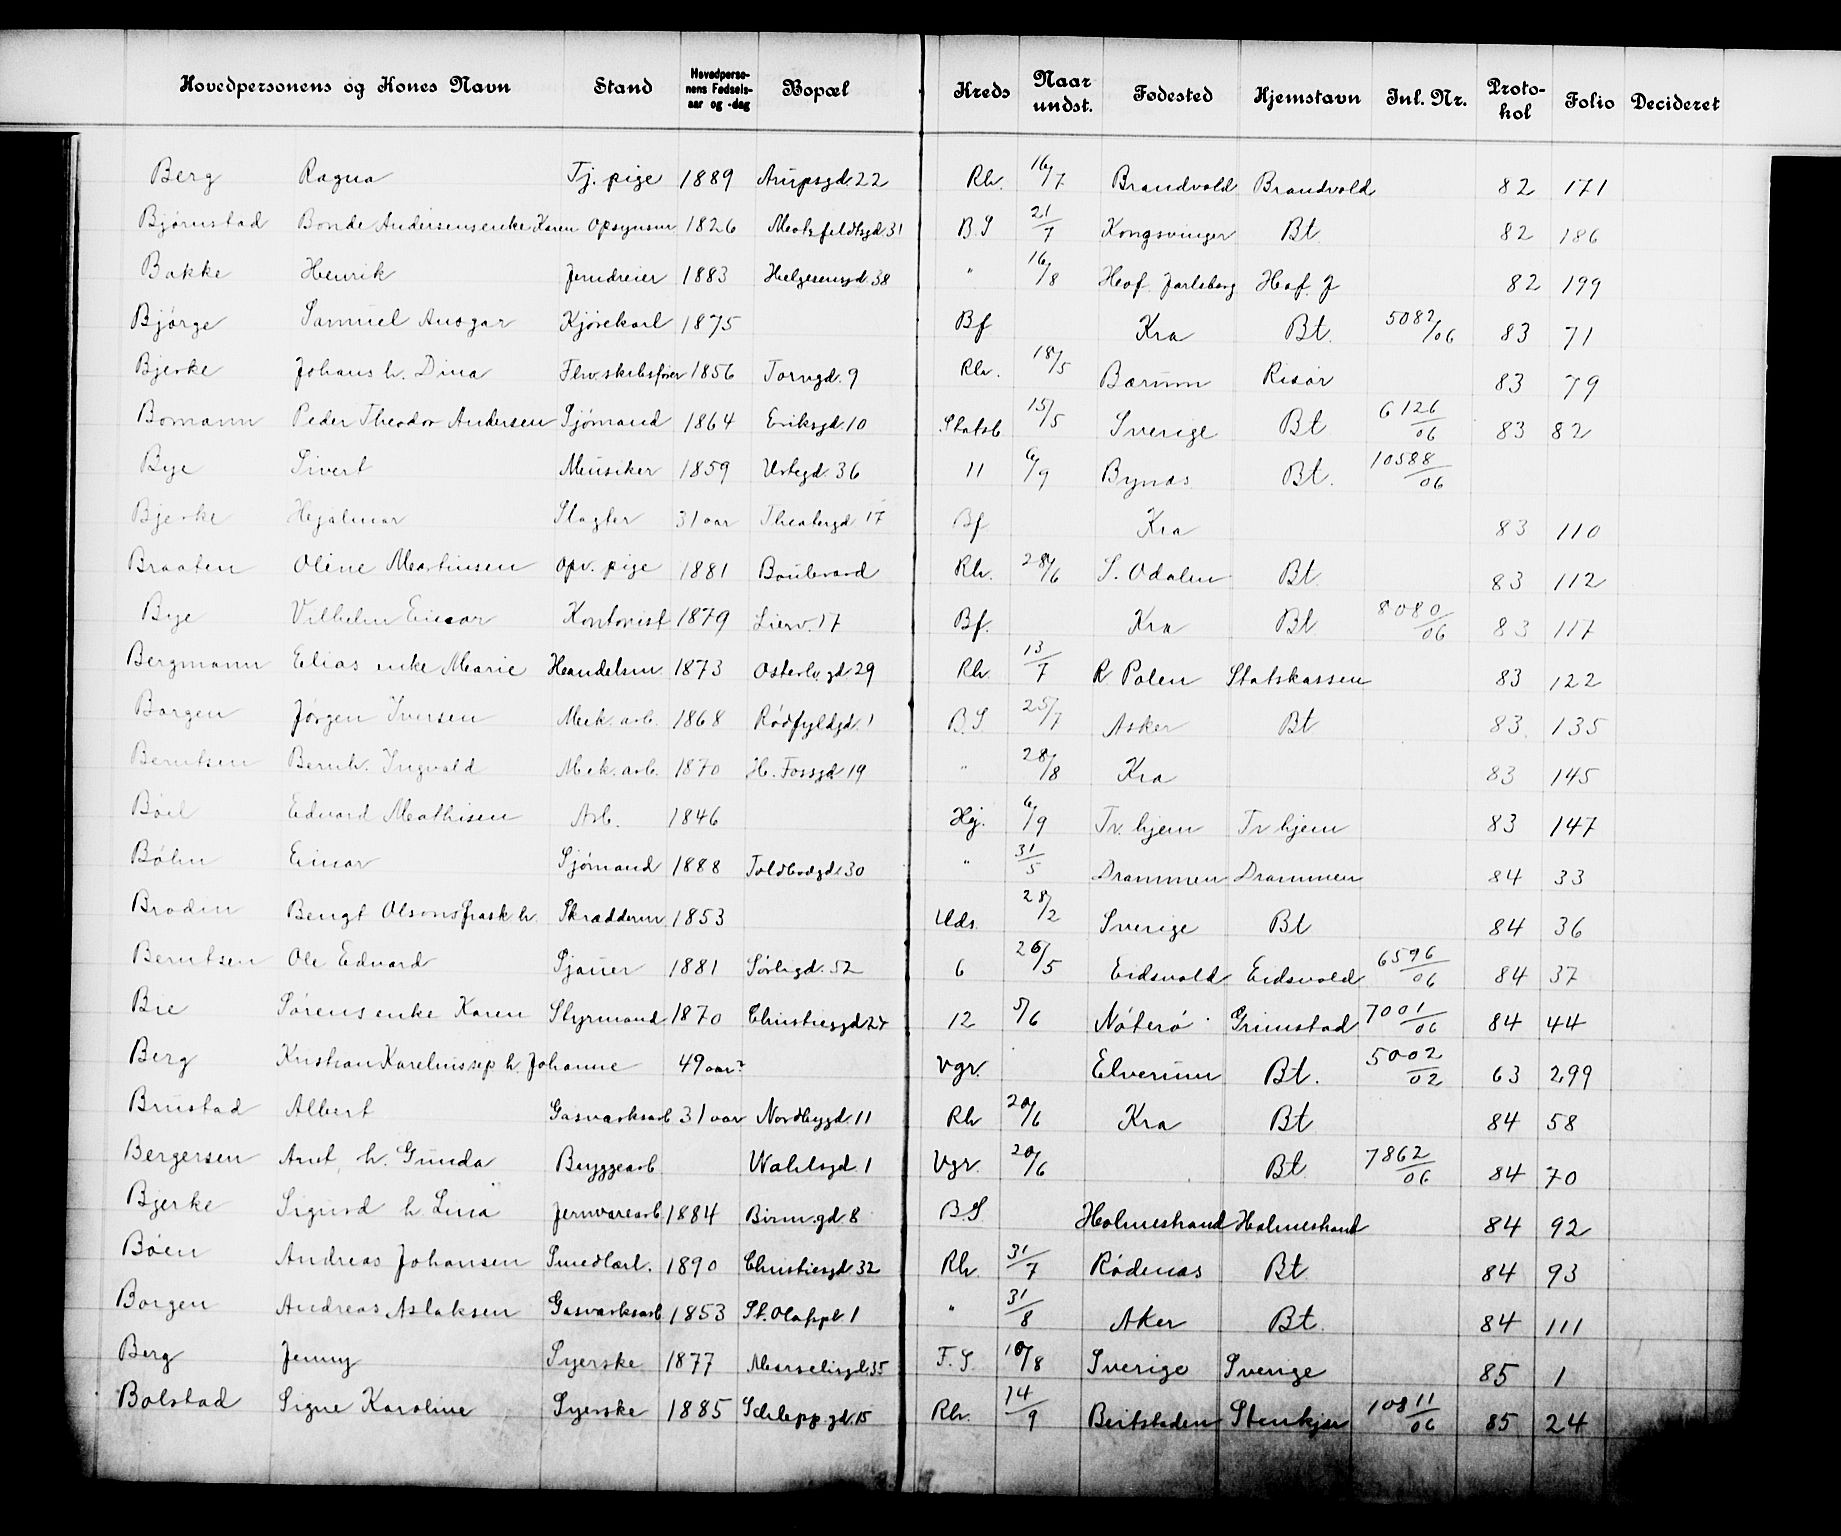 Hovedpersonens og Kones Navn Stand Hovedpersonens Fødselsaar og -dag Bopæl Kreds Naar undst. Fødested Hjemstavn Inl. Nr. Protokol Folio Decideret
Berg Ragna Tj. pige 1889 Arupsgd. 22 Rh. 16/7 Brandvold Brandvold 82 171
Bjørnstad Bonde Andersens enke Karen Opsynsm 1826 Motzfeldtsgd 31 B.S 21/7 Kongsvinger Bt 82 186
Bakke Henrik Jerndreier 1883 Helgesensgd. 38 " 16/8 Hof. Jarlsberg Hof. J 82 199
Bjørge Samuel Ansgar Kjørekarl 1875 Bf Kra Bt. 5082/06 83 71
Bjerke Johans h. Dina skibsfører 1856 Torvgd. 9 Rh. 18/5 Bærum Risør 83 79
Bomann Peder Theodor Andersen Sjømand 1864 Eriksgd. 10 Statsb 15/5 Sverige Bt 6126/06 83 82
Bye Sivert Musiker 1859 Urtegd. 36 11 6/9 Bynæs Bt. 10588/06
Bjerke Hjalmar Slagter 31 aar Theatergd 17 Bf Kra 83 110
Braaten Oline Martinsen Opv. pige 1881 Boulevard Rh. 28/6 S. Odalen Bt 83 112
Bye Vilhelm Einar Kontorist 1879 Lierv. 17 Bf. Kra Bt 8080/06 83 117
Bergmann Elias enke Marie Handelsm 1873 Osterh.gd 29 Rh. 13/7 R. Polen Statskassen 83 122
Borgen Jørgen Iversen Mek. arb. 1868 Rødfyldgd. 1 B.S. 25/7 Asker Bt 83 135
Berntsen Bernh. Ingvald Mek. arb. 1870 H. Fossgd 19 " 28/8 Kra 83 145
Bøil Edvard Mathisen Arb. 1846 Hj. 6/9 Tr. hjem Tr hjem 83 147
Bøhn Einar Sjømand 1888 Toldbodgd. 30 " 31/5 Drammen Drammen 84 33
Brodin Bengt Olsons frask h. Skrædderm 1853 Uds. 28/2 Sverige Bt 84 36
Berntsen Ole Edvard Sjauer 1881 Sørligd. 52 6 26/5 Eidsvold Eidsvold 6596/06 84 37
Bie Sørens enke Karen Styrmand 1870 Christiesgd 27 12 5/6 Nøterø Grimstad 7001/06 84 44
Berg Kristian Karelius sep h. Johanne 49 aar? Vgr. Elverum Bt. 5002/02 63 299
Brustad Albert Gasværksarb 31 aar Nordbygd. 11 Rh 20/6 Kra Bt 84 58
Bergersen Ant. h. Gunda Bryggearb Wahlsgd. 1 Vgr. 20/6 Bt. 7862/06 84 70
Bjerke Sigurd h. Lina Jernvarearb. 1884 Birm.gd 8 B.S. Holmestrand Holmestrand 84 92
Bøen Andreas Johansen Smedlærl. 1890 Christiesgd. 32 Rh. 31/7 Rødenæs Bt 84 93
Borgen Andreas Aslaksen Gasværksarb 1853 St. Olafspl. 1 " 31/8 Aker Bt. 84 111
Berg Jenny Syerske 1877 Marselisgd. 35 F.S. 10/8 Sverige Sverige 85 1
Bolstad Signe Karoline Syerske 1885 Schleppgd. 15 Rh. 14/9 Beitstaden Stenkjer 10811/06 85 24